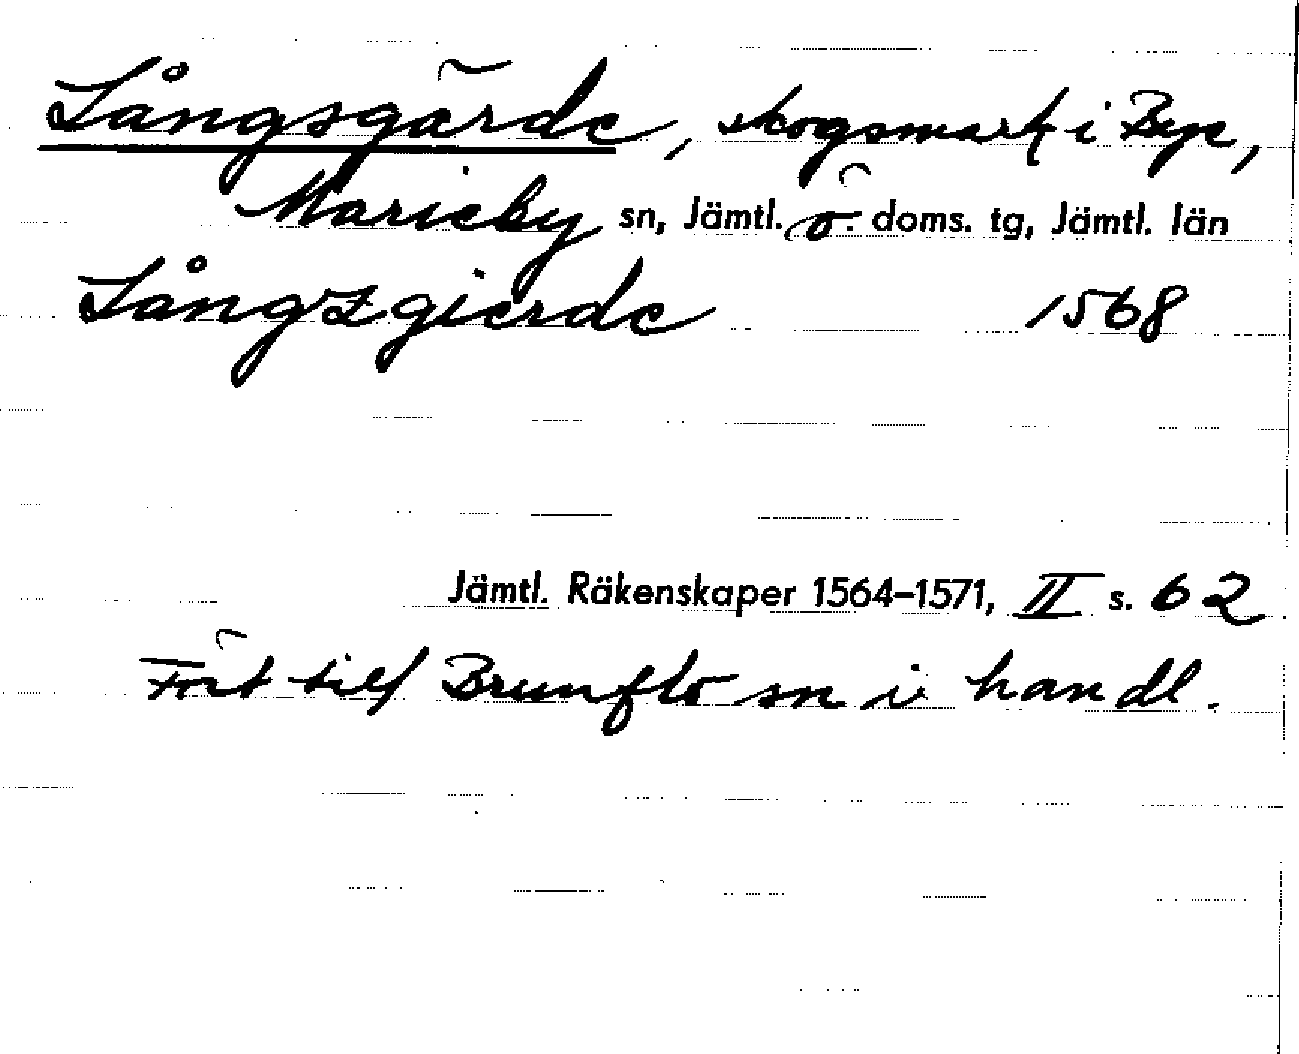 Långsgärde, skogsmark i Bye,
Marieby sn, Jämtl. ö. doms. tg, Jämtl. län
Långzgierde 1568
Jämtl. Räkenskaper 1564–1571, II s. 62
Fört till Brunflo sn i handl.